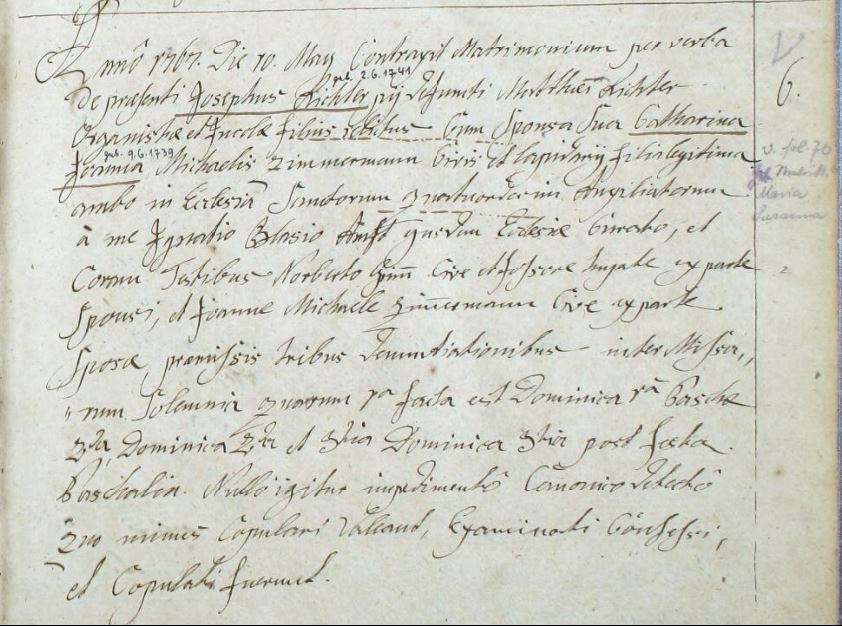 Annô 1767. Die 10. Maij Contraxit Matrimonium per verba
geb. 2.6.1741
de præsenti Josephus Richter pij defuncti Matthæi Richter
6.
Organistæ et Incolæ filius relictus Cum Sponsa Sua Catharina
geb. 9.6.1739
Joanna Michaelis Zimmermann Civis et lapidarij filia legitima
v. fol. 70
Maria
Susanna
ambo in Ecclesia Sanctorum quatuordecim Auxiliatorum
à me Ignatio Blasio ejusdem Ecclesiæ Curato, et
Coram Testibus Norberto Cive et fossore ex parte
Sponsi, et Joanne Michaele Zimmermann Cive ex parte
Sponsæ, præmissis tribus denuntiationibus inter Missa,,
"rum Solemnia quarum 1a facta est Dominica 1a Paschæ
2da, Dominica 2da et 3tia Dominica 3tia post festa
Paschalia. Nullô igitur impedimentô Canonico detectô
quo minus Copulari valeant, Examinati Confessi,
et Copulati fuerunt.